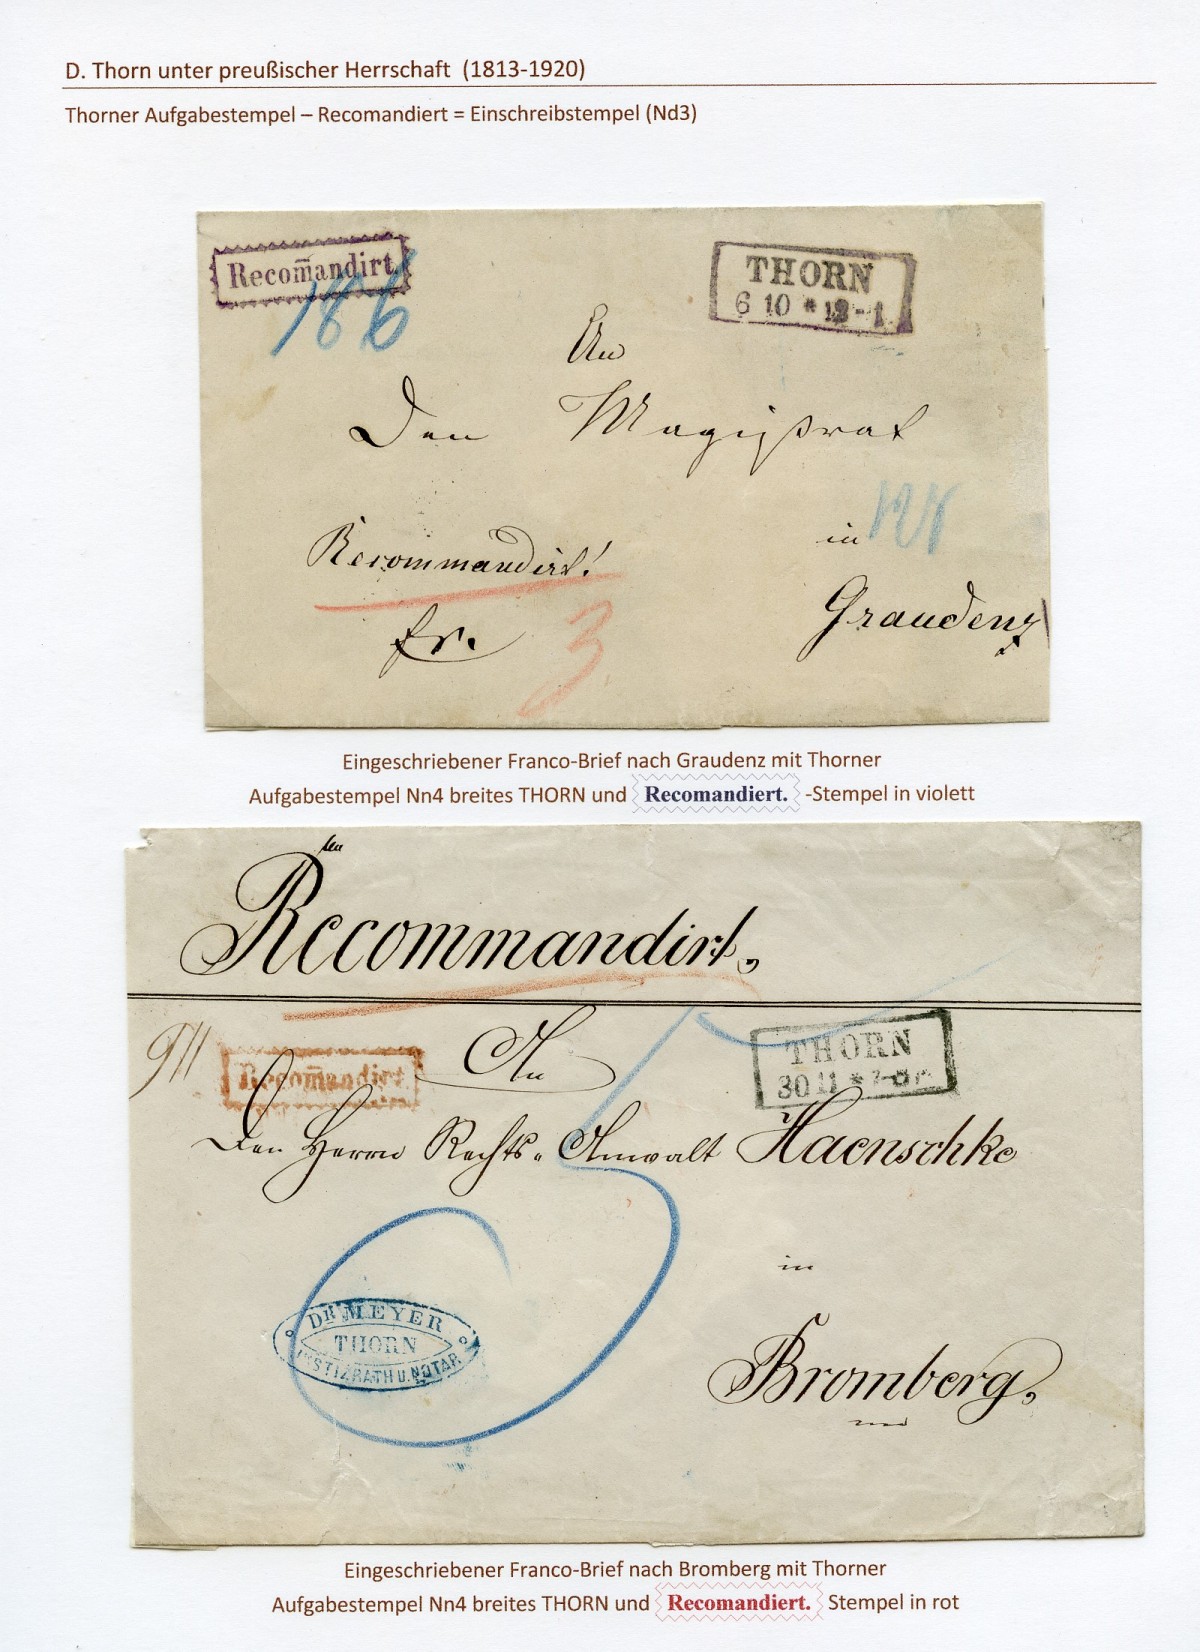 D. Thorn unter preußischer Herrschaft (1813-1920)
Thorner Aufgabestempel – Recomandiert = Einschreibstempel (Nd3)
Recom̅andirt.
186
THORN
6 10 * 12-1
An
Den Magistrat
128
in
Recommandirt!
Graudenz
fr.
3
Eingeschriebener Franco-Brief nach Graudenz mit Thorner
Aufgabestempel Nn4 breites THORN und Recomandiert. -Stempel in violett
Recommandirt,
An
911
Recom̅andirt.
THORN
30 11 *
Den Herrn Rechts-Anwalt Haenschke
in
DR MEYER
THORN
JUSTIZRATH U. NOTAR
Bromberg,
Eingeschriebener Franco-Brief nach Bromberg mit Thorner
Aufgabestempel Nn4 breites THORN und Recomandiert. Stempel in rot